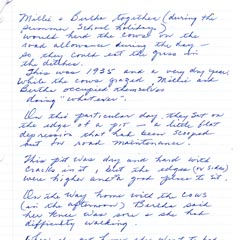 Millie & Bertha together (during the
summer school holiday)
would herd the cows on the
road allowance during the day —
so they could eat the grass in
the ditches.
This was 1935 and a very dry year.
While the cows grazed Millie and
Bertha occupied themselves
doing "whatever".
On this particular day, they sat on
the edge of a pit in a little flat
depression that had been scooped
out for road maintenance.
This pit was dry and hard with
cracks in it, but the edges (or sides)
were higher and a good place to sit.
On the way home with the cows
(in the afternoon) Bertha said
her knee was sore & she had
difficulty walking.